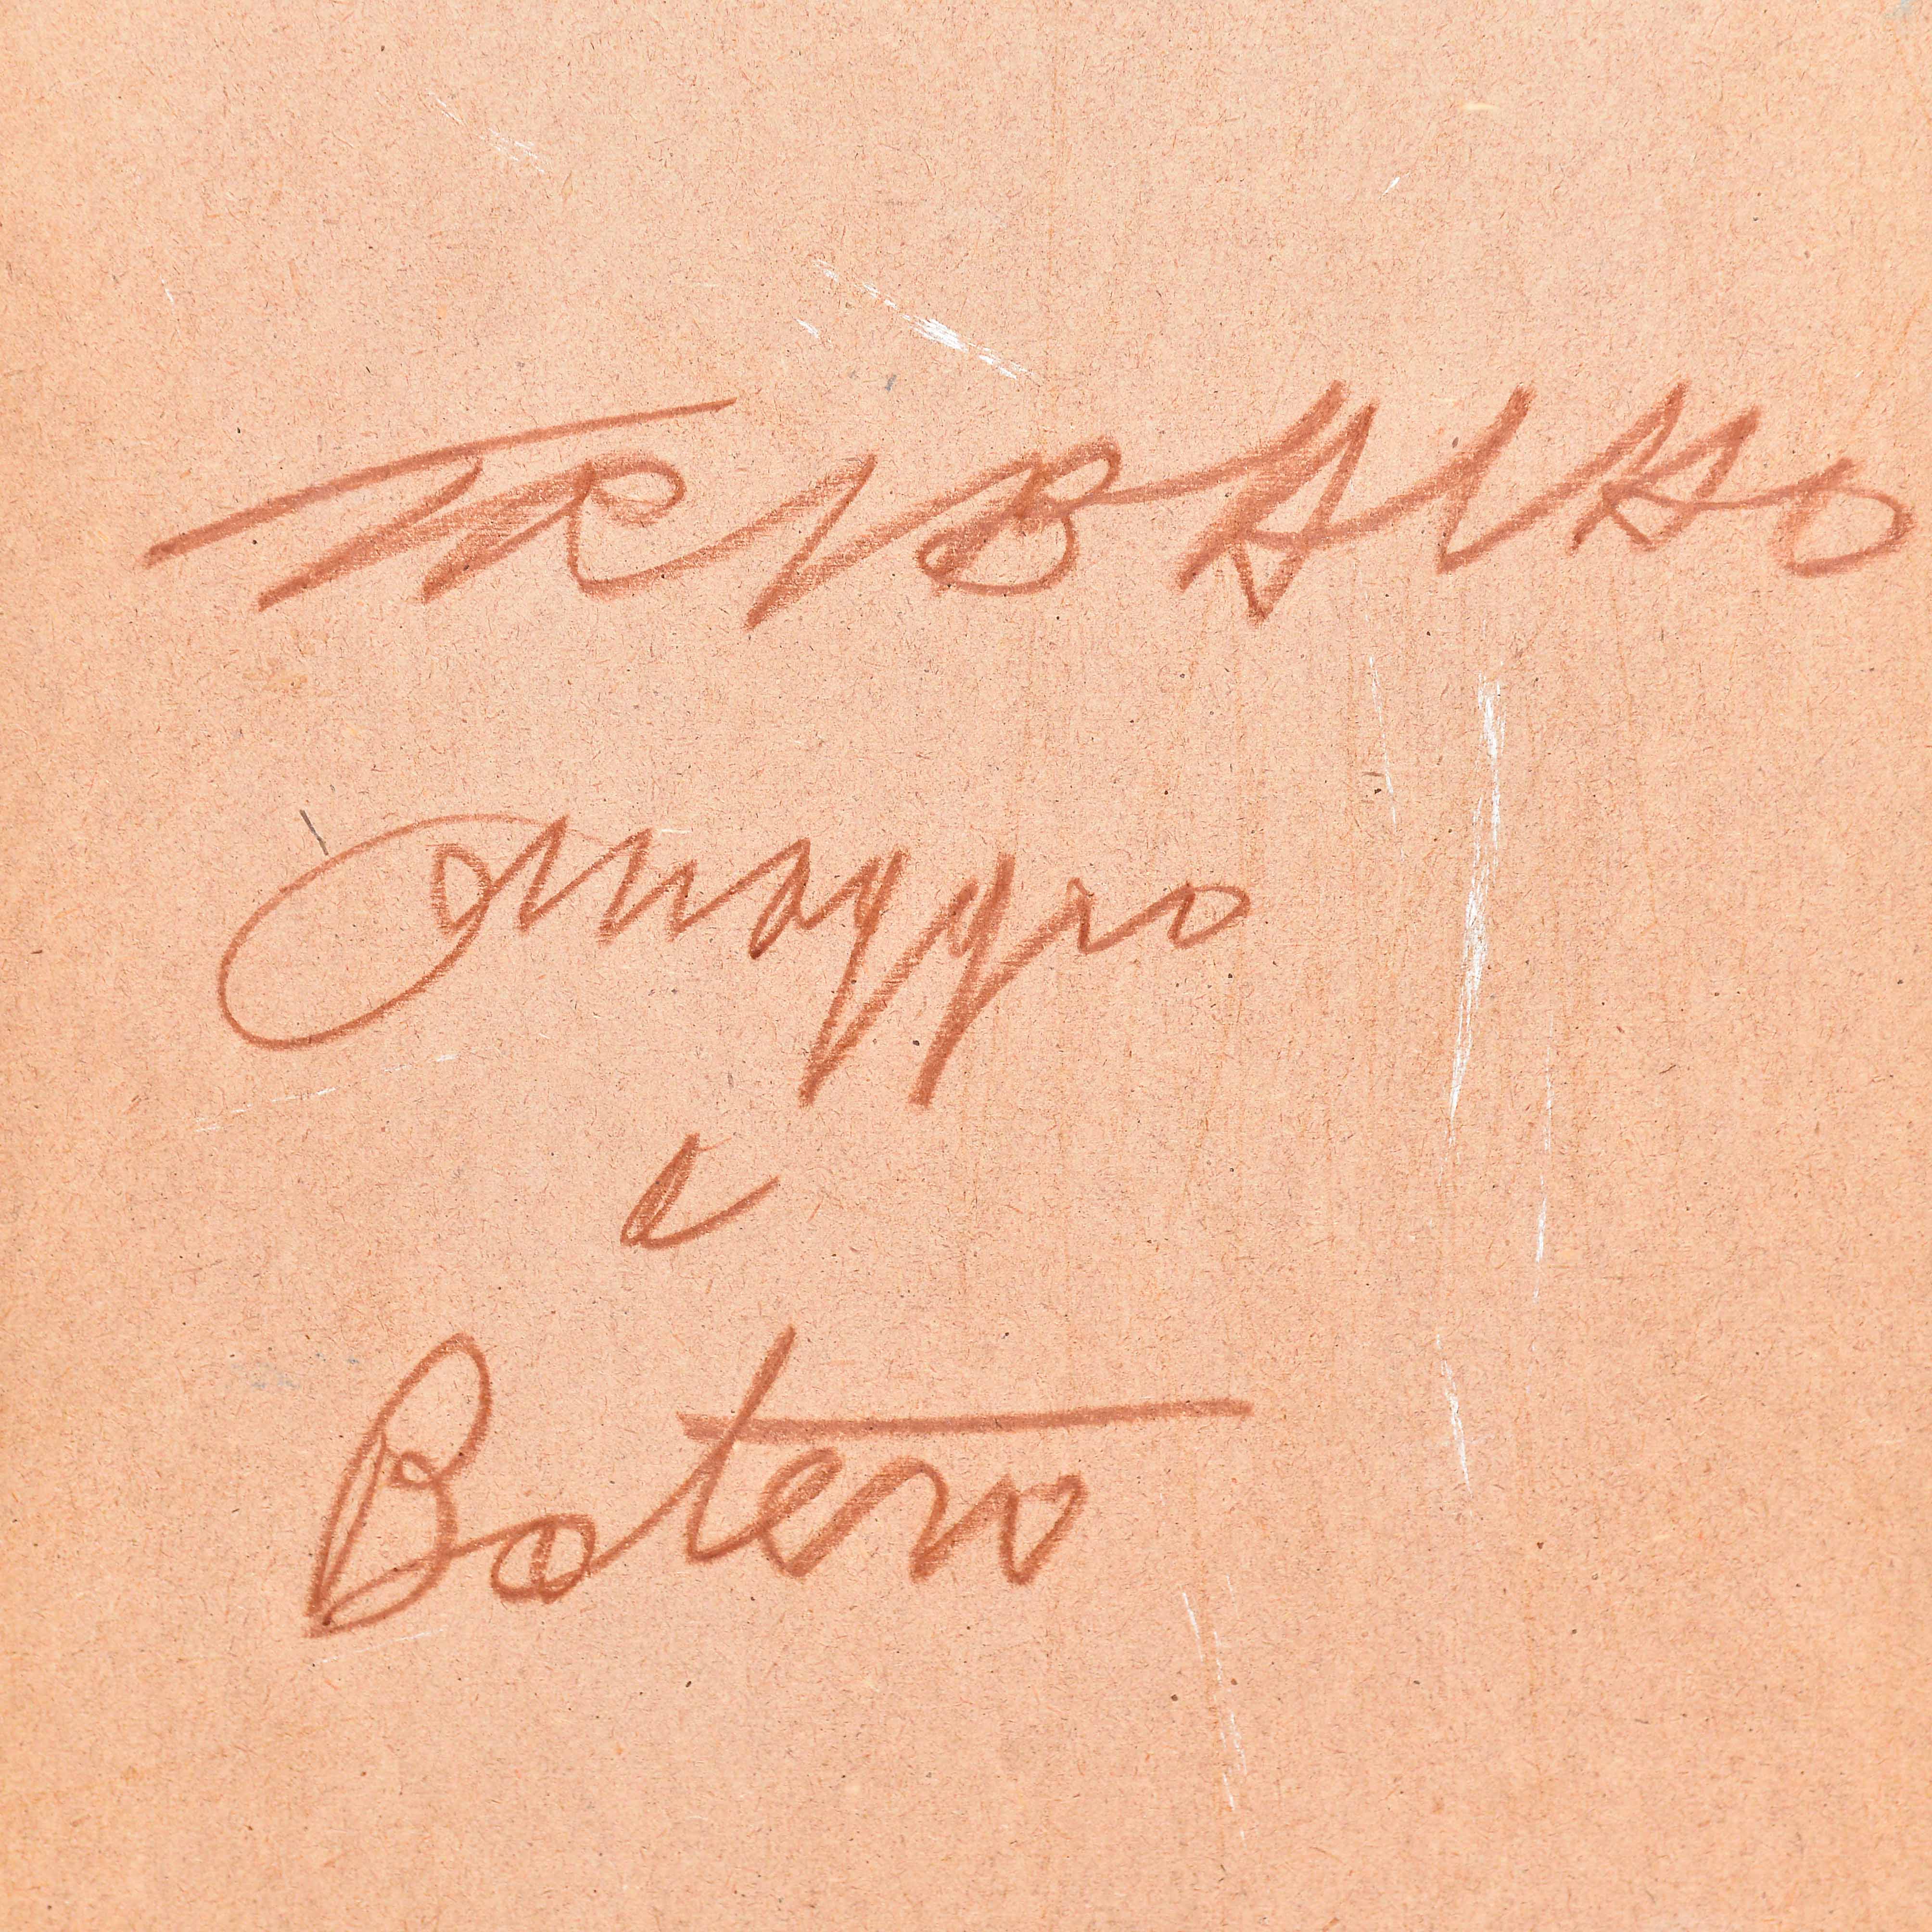 TRIBALHO
Omaggio
a
Botero